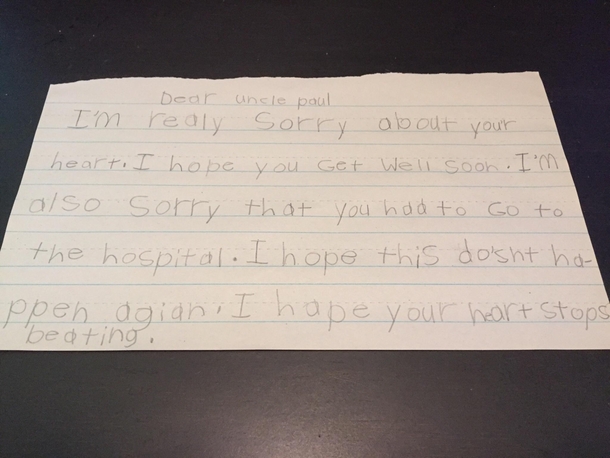 Dear uncle paul
I'm realy Sorry about your
heart. I hope you Get well soon. I'm
also Sorry that you had to Go to
the hospital. I hope this do'snt ha-
ppen agian. I hape your heart stops
beating.